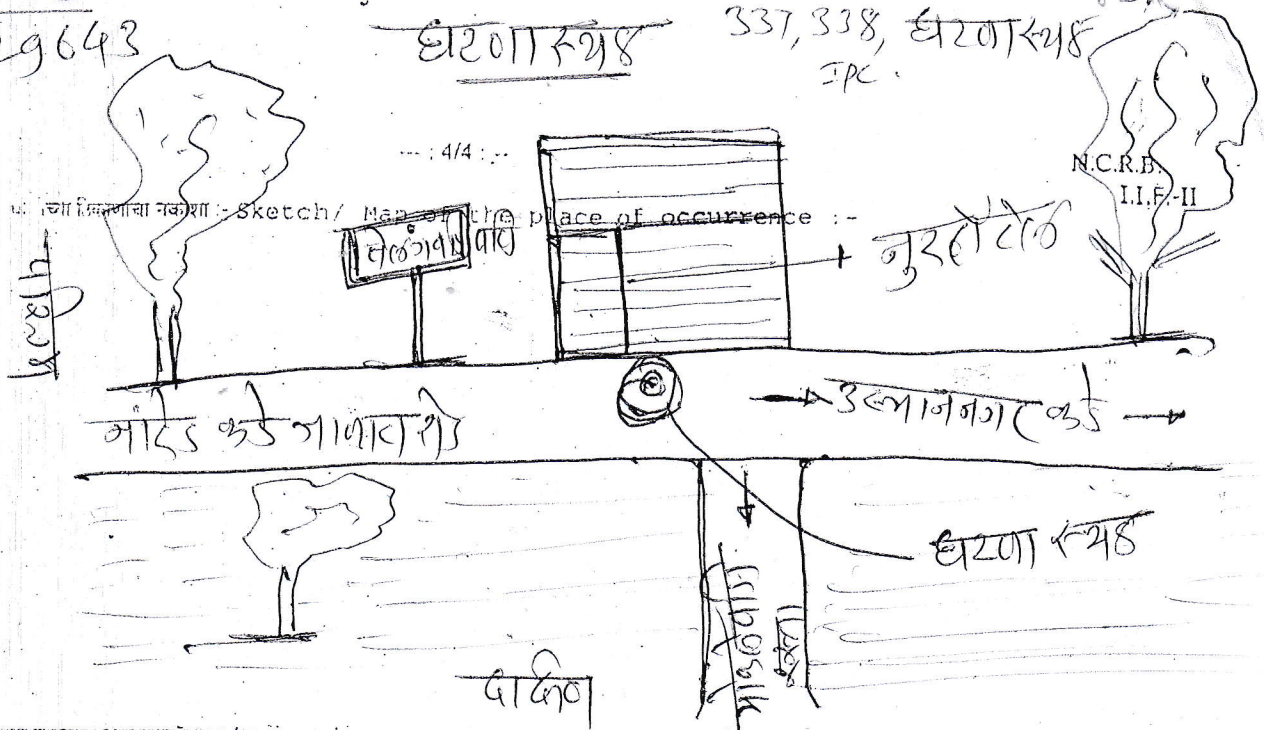 9643
घटणा स्थळ
337, 338, घटणा स्थळ
IPC.
--- : 4/4 : --
N.C.R.B.
I.I.F.-II
नकाशा :- Sketch/ Map of the place of occurrence :-
तेलंगवाडी पाटी
नुर होटेल
पश्चिम
नांदेड कडे जाणारा रोड
→ उस्माननगर कडे →
घटणा स्थळ
दक्षिण